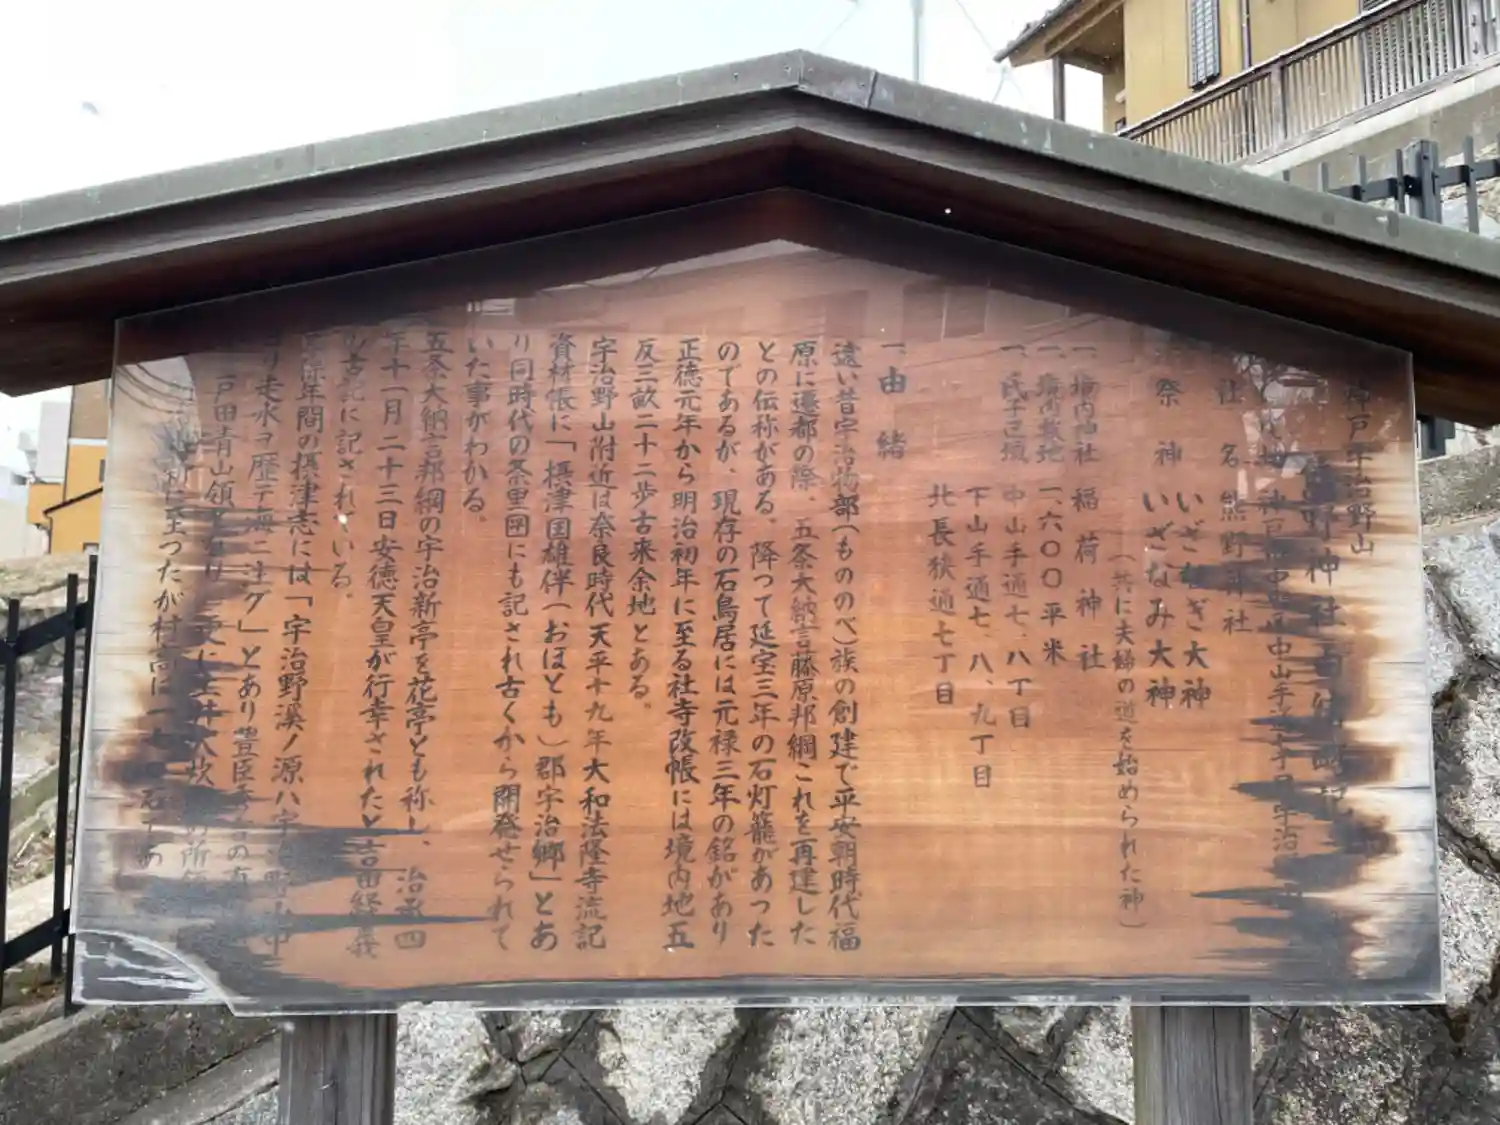 神戸宇治野山
熊野神社
神戸 中山手 丁目宇治
社名 熊野神社
祭神 いざなぎ大神
いざなみ大神
(共に夫婦の道を始められた神)
一、境内神社 稲荷神社
一、境内敷地 一、六〇〇平米
一、氏子区域 中山手通七、八丁目
下山手通七、八、九丁目
北長狭通七丁目
一、由緒
遠い昔宇治物部(もののべ)族の創建で平安朝時代福
原に遷都の際、五条大納言藤原邦綱これを再建した
との伝称がある、降つて延宝三年の石灯籠があつた
のであるが、現存の石鳥居には元禄三年の銘があり
正徳元年から明治初年に至る社寺改帳には境内地五
反三畝二十二歩古来余地とある。
宇治野山附近は奈良時代天平十九年大和法隆寺流記
資材帳に「摂津国雄伴(おほとも)郡宇治郷」とあ
り同時代の条里図にも記され古くから開発せられて
いた事がわかる。
五条大納言邦綱の宇治新亭を花亭とも称し、治承四
年十一月二十三日安徳天皇が行幸されたと吉田経義
の古記に記されている。
年間の摂津志には「宇治野溪ノ源ハ宇 野山中
リ走水ヲ歴テ海ニ注グ」とあり豊臣
戸田青山領 更に 井大炊 の所領
つたが村高は